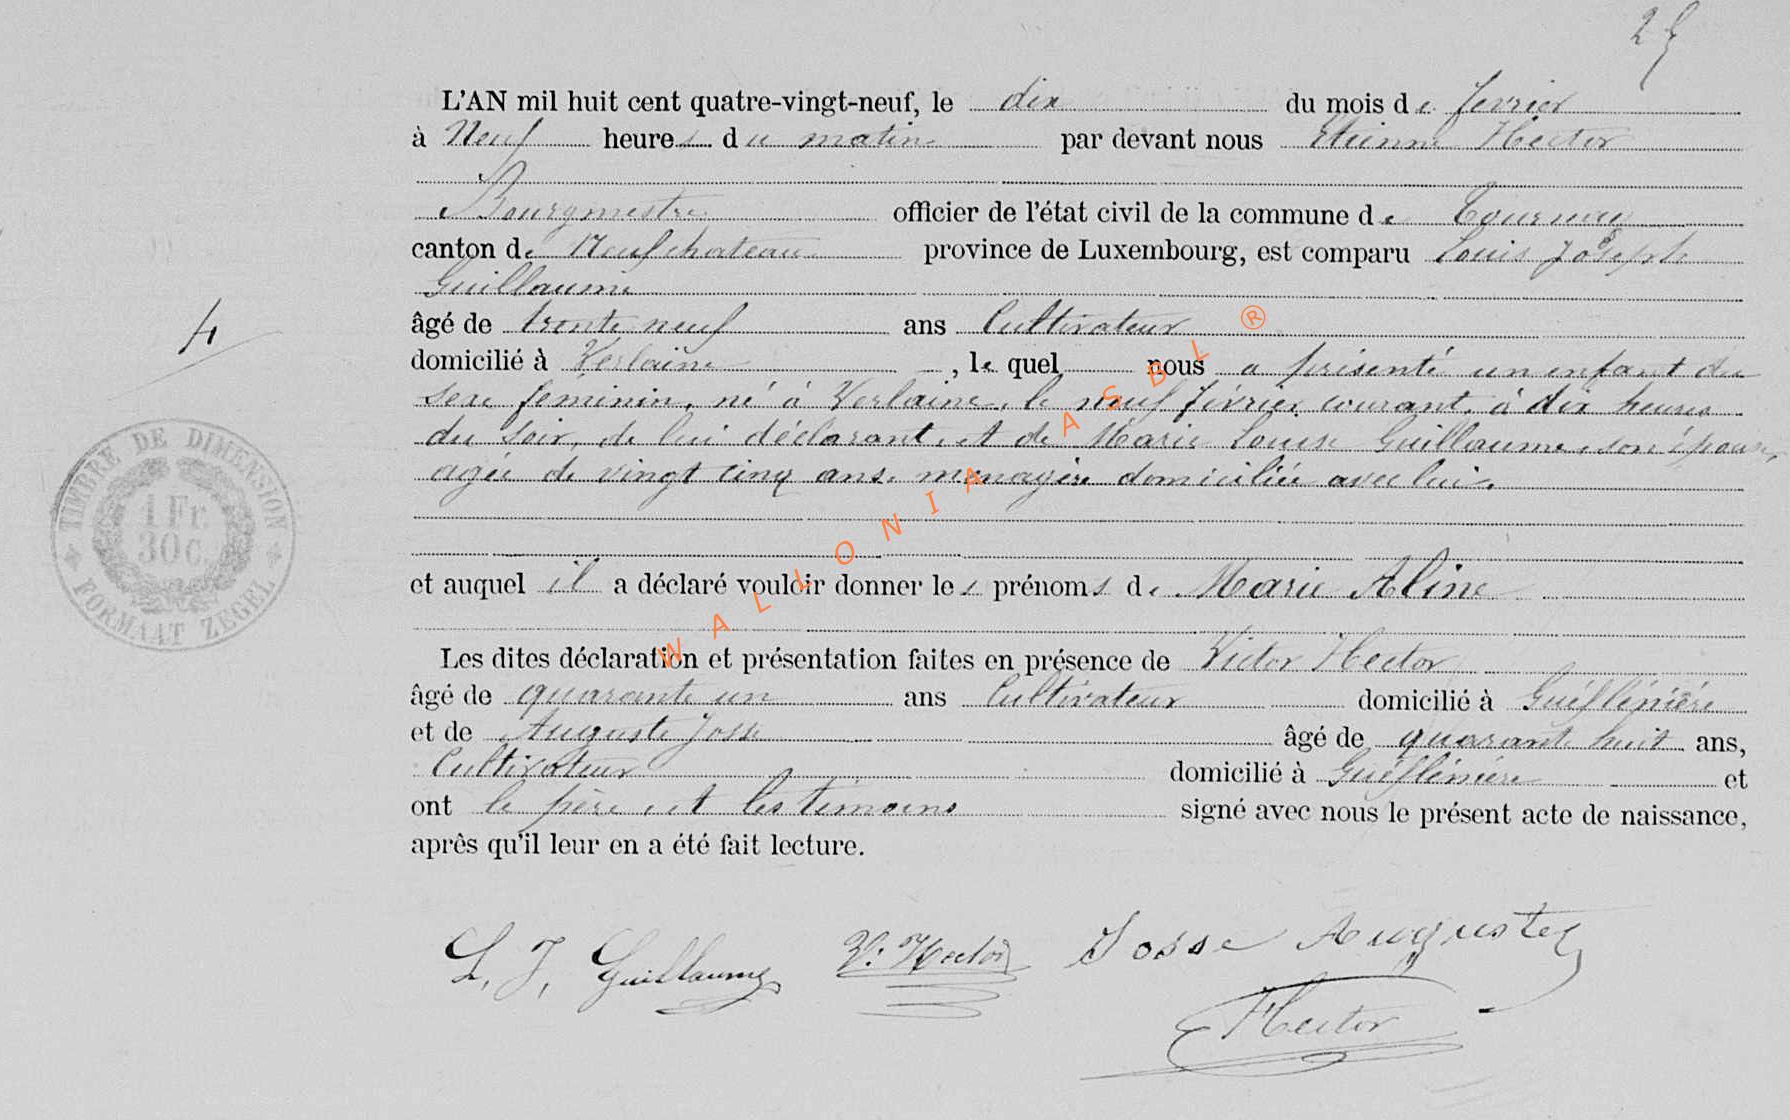 25
L'AN mil huit cent quatre-vingt-neuf, le dix du mois de fevrier
à Neuf heures du matin par devant nous Etienne Hector
Bourgmestre officier de l'état civil de la commune de Tournay
canton de Neufchateau province de Luxembourg, est comparu Louis Joseph
Guillaume
âgé de trente neuf ans Cultivateur
domicilié à Verlaine, le quel nous a présenté un enfant du
sexe féminin, né à Verlaine, le neuf février courant, à dix heures
du soir, de lui déclarant et de Marie Louise Guillaume, son épouse,
agée de vingt cinq ans, menagère domiciliée avec lui.
et auquel il a déclaré vouloir donner les prénoms de Marie Aline
Les dites déclaration et présentation faites en présence de Victor Hector
âgé de quarante un ans Cultivateur domicilié à
et de Auguste Josse âgé de quarante huit ans,
Cultivateur domicilié à et
ont le père et les témoins signé avec nous le présent acte de naissance,
après qu'il leur en a été fait lecture.
4
TIMBRE DE DIMENSION
1 Fr.
30 c.
FORMAAT ZEGEL
WALLONIA ASBL ®
L. J. Guillaume V. Hector Josse Auguste
Hector